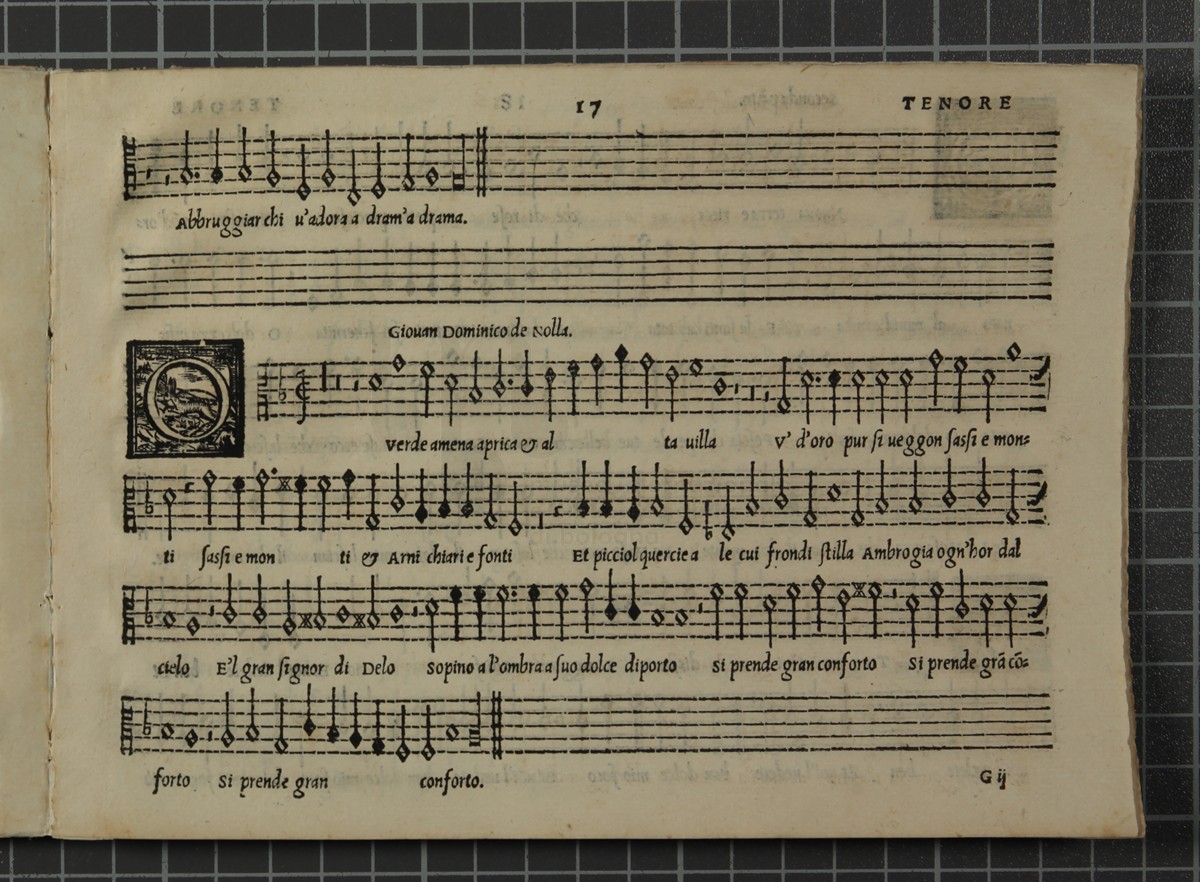 17 TENORE
Abbruggiar chi u'adora a dram'a drama.
Giouan Dominico de Nolla.
O verde amena aprica & al ta uilla V' d'oro pur si ueggon sassi e mon=
ti sassi e mon ti & Arni chiari e fonti Et picciol quercie a le cui frondi stilla Ambrogia ogn'hor dal
cielo E'l gran signor di Delo Sopino a l'ombra a suo dolce diporto Si prende gran conforto Si prende grā cō=
forto Si prende gran conforto.
G ij